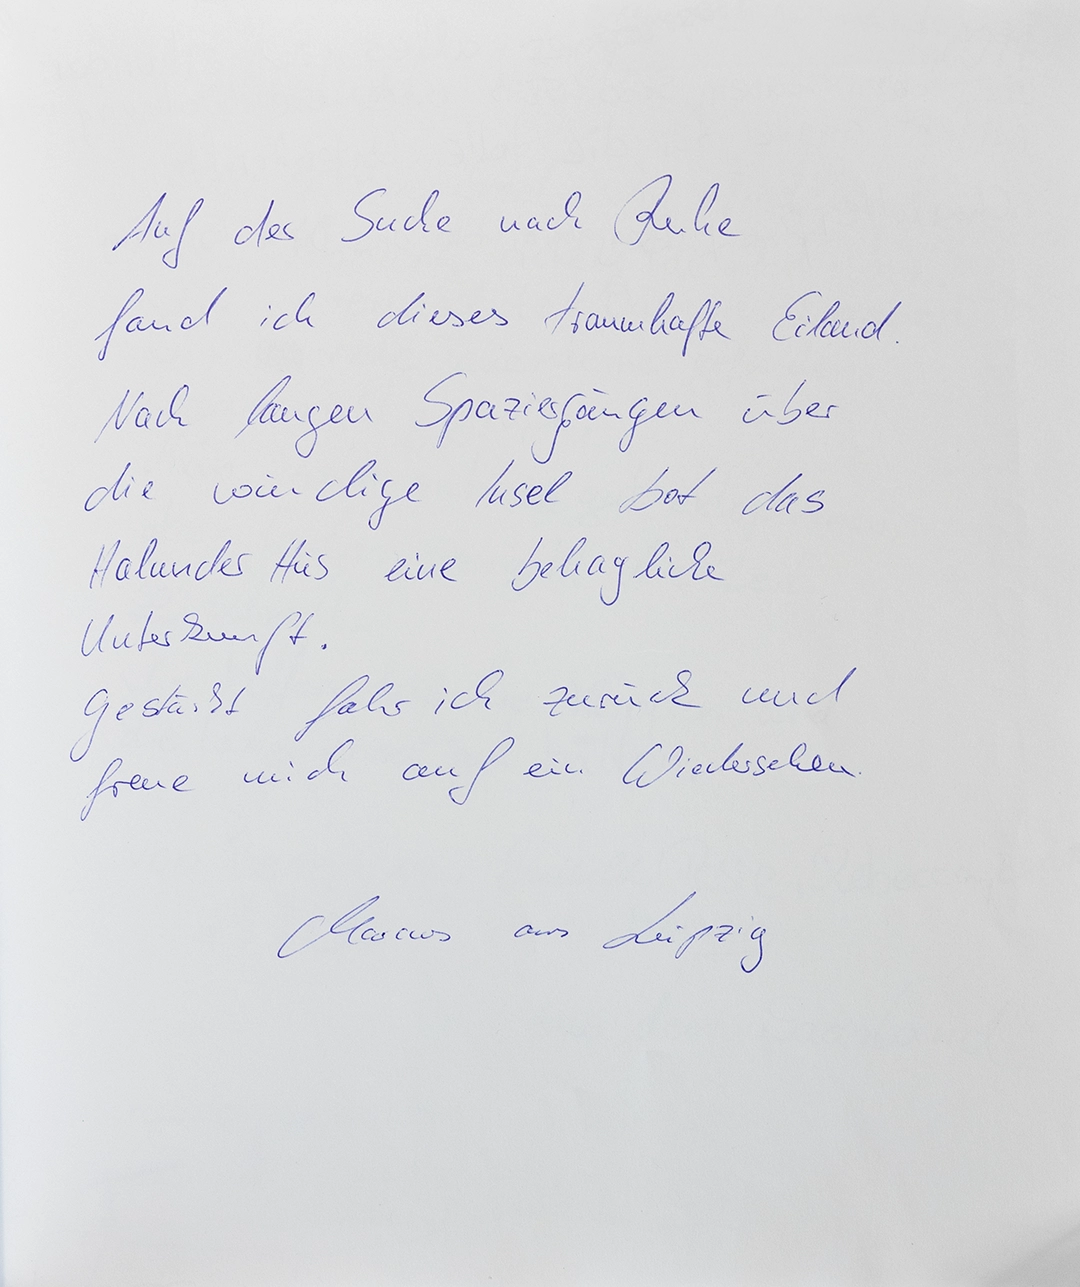 Auf der Suche nach Ruhe
fand ich dieses traumhafte Eiland.
Nach langen Spaziergängen über
die windige Insel bot das
Halunder Hüs eine behagliche
Unterkunft.
Gestärkt fahr ich zurück und
freue mich auf ein Wiedersehen.
Marcus aus Leipzig